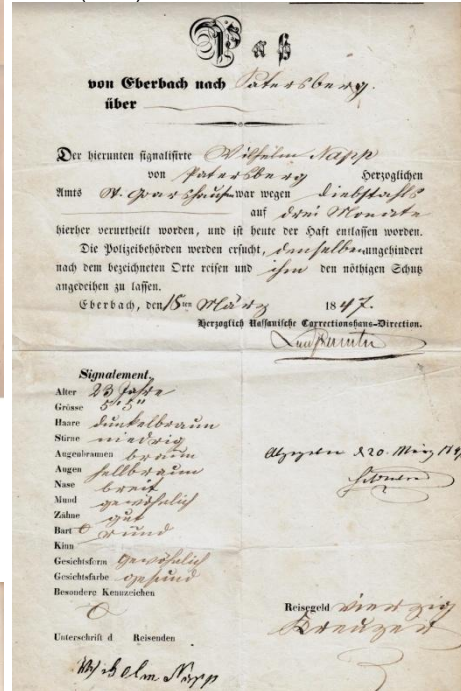 Paß
von Eberbach nach Patersberg.
über
Der hierunten signalisirte Wilhelm Napp
von Patersberg Herzoglichen
Amts St. Goarshausen war wegen Diebstahls
auf drei Monate
hierher verurtheilt worden, und ist heute der Haft entlassen worden.
Die Polizeibehörden werden ersucht, denselben ungehindert
nach dem bezeichneten Orte reisen und ihm den nöthigen Schutz
angedeihen zu lassen.
Eberbach, den 15ten März 1847.
Herzoglich Nassauische Correctionshaus-Direction.
Signalement.
Alter 23 Jahre
Grösse 5' 5"
Haare dunkelbraun
Stirne niedrig
Augenbraunen braun
Augen hellbraun
Nase breit
Mund gewöhnlich
Zähne gut
Bart 0
Kinn rund
Gesichtsform gewöhnlich
Gesichtsfarbe gesund
Besondere Kennzeichen
0
Unterschrift d Reisenden
Wilhelm Napp
Abgegeben d 20. März
Reisegeld vierzig
Kreuzer